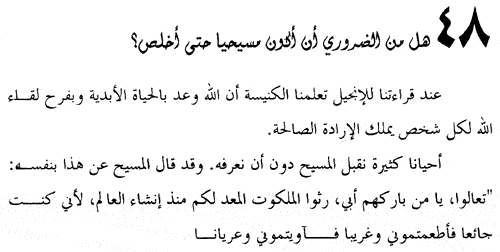 ٤٨ هل من الضروري أن أكون مسيحيا حتى أخلص؟
عند قراءتنا للإنجيل تعلمنا الكنيسة أن الله وعد بالحياة الأبدية وبفرح لقاء
الله لكل شخص يملك الإرادة الصالحة.
أحيانا كثيرة نقبل المسيح دون أن نعرفه. وقد قال المسيح عن هذا بنفسه:
"تعالوا، يا من باركهم أبي، رثوا الملكوت المعد لكم منذ إنشاء العالم، لأني كنت
جائعا فأطعمتموني وغريبا فآويتموني وعريانا